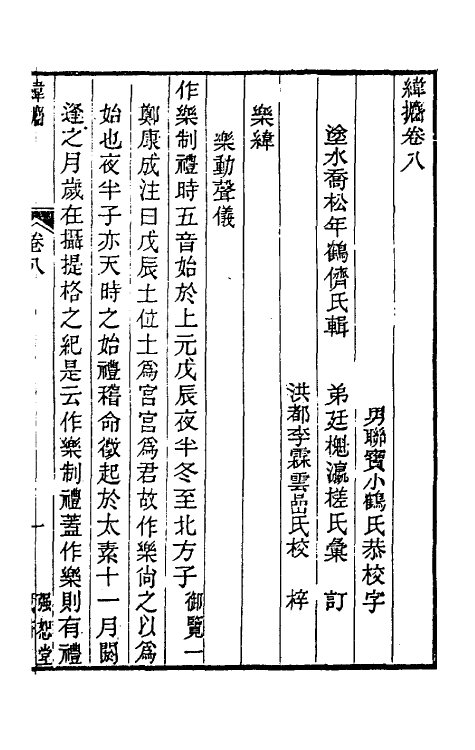 緯攟卷八
男聯寶小鶴氏恭校字
塗水喬松年鶴儕氏輯　弟廷櫆瀛槎氏彙　訂
洪都李霖雲嵒氏校　梓
樂緯
樂動聲儀
作樂制禮時五音始於上元戊辰夜半冬至北方子御覽一
鄭康成注曰戊辰土位土爲宮宮爲君故作樂尙之以爲
始也夜半子亦天時之始禮稽命徵起於太素十一月閼
逢之月歲在攝提格之紀是云作樂制禮蓋作樂則有禮
緯攟
卷八
一
强恕堂